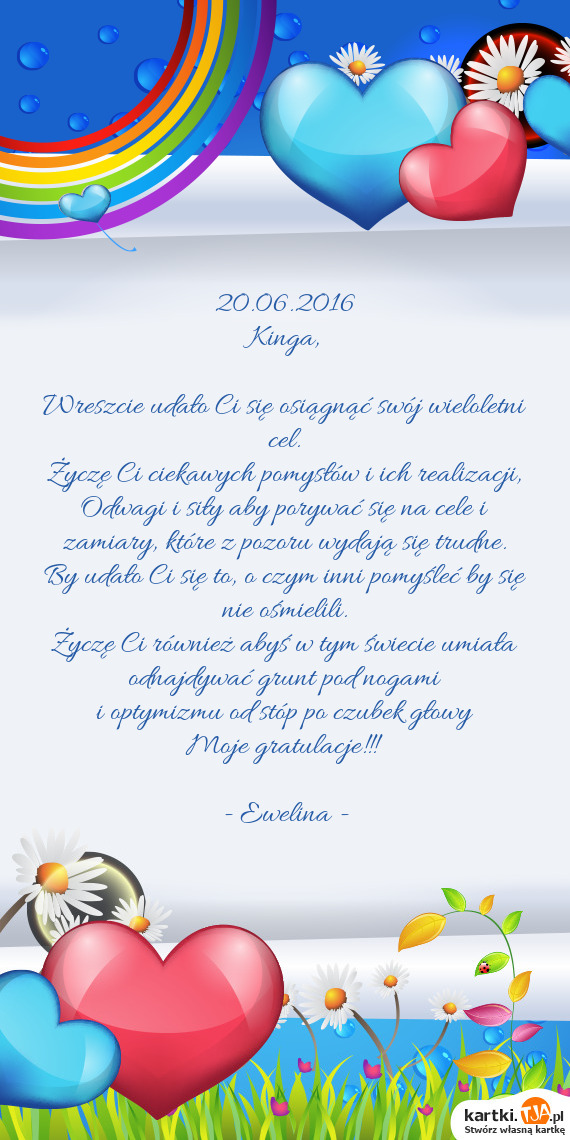 20.06.2016
Kinga,
Wreszcie udało Ci się osiągnąć swój wieloletni
cel.
Życzę Ci ciekawych pomysłów i ich realizacji,
Odwagi i siły aby porywać się na cele i
zamiary, które z pozoru wydają się trudne.
By udało Ci się to, o czym inni pomyśleć by się
nie ośmielili.
Życzę Ci również abyś w tym świecie umiała
odnajdywać grunt pod nogami
i optymizmu od stóp po czubek głowy
Moje gratulacje!!!
- Ewelina -
kartki.TJA.pl
Stwórz własną kartkę